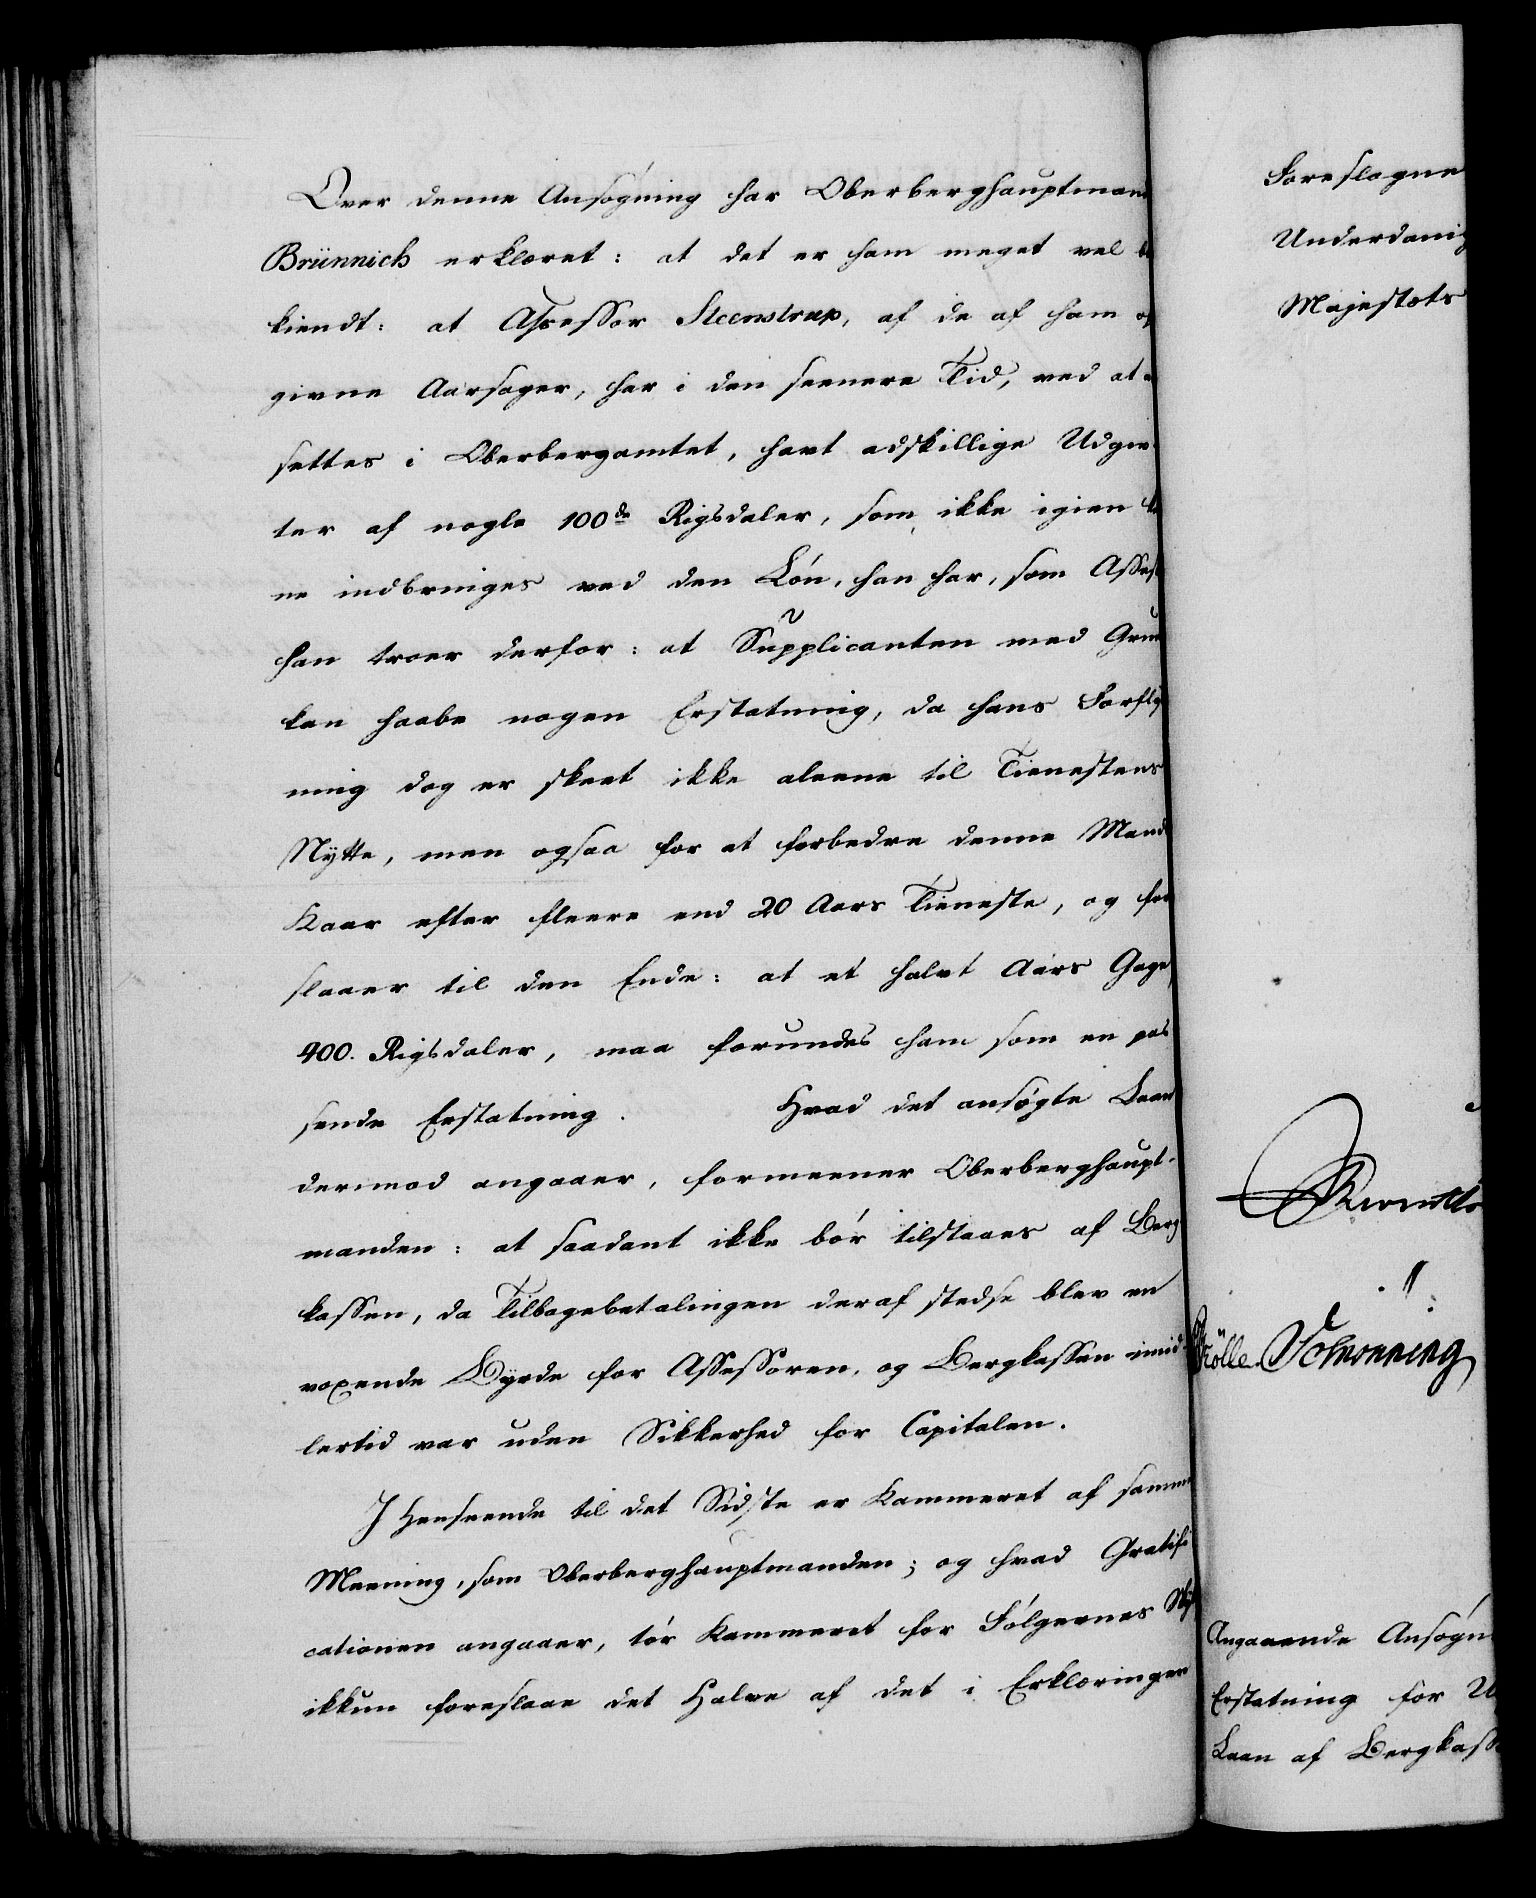 Over denne Ansøgning har Oberberghauptmand
Brünnich erklæret: at det er ham meget vel be
kiendt: at Assessor Steenstrup, af de af ham op
givne Aarsager, har i den seenere Tid, ved at
sættes i Oberbergamtet, havt adskillige Udgiv
ter af nogle 100de Rigsdaler, som ikke igien ku
ne indbringes ved den Løn, han har, som Assess
han troer derfor: at Supplicanten med Grun
kan haabe nogen Erstatning, da hans Forflyt
ning dog er skeet ikke aleene til Tienestens
Nytte, men ogsaa for at forbedre denne Mands
Kaar efter fleere end 20 Aars Tieneste, og fore
slaaer til den Ende: at et halvt Aars Gage,
400. Rigsdaler, maa forundes ham som en pas
sende Erstatning. Hvad det ansøgte Laan
derimod angaaer, formeener Oberberghaupt-
manden: at saadant ikke bør tilstaaes af Berg
kassen, da Tilbagebetalingen deraf stedse blev en
voxende Byrde for Assessoren, og Bergkassen imid-
lertid var uden Sikkerhed for Capitalen.
I Henseende til det Sidste er Kammeret af samme
Meening, som Oberberghauptmanden; og hvad Gratifi
cationen angaaer, tør Kammeret for Følgernes Sky
ikkun foreslaae det Halve af det i Erklæringen
Foreslagne
Underdanig
Majestæts
Schønning
Angaaende Ansøgn
Erstatning for U
Laan af Bergkass